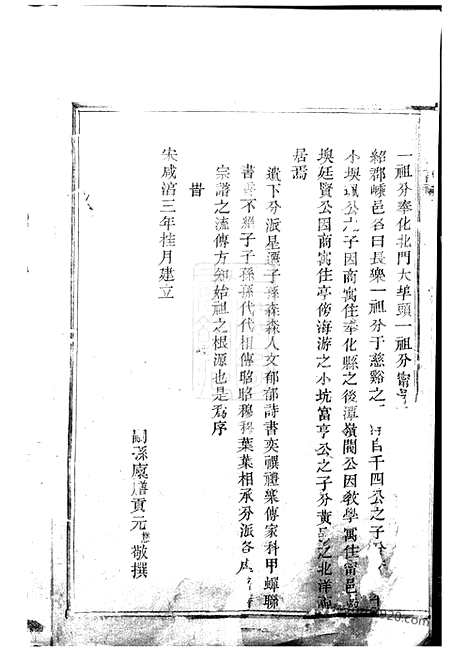 一祖分奉化北門大埠頭一祖分甯
紹郡嵊邑名曰長樂一祖分于慈谿之 百千四公之子
小 公 子因商寓住奉化縣之後潭嶺閬公因教學寓住甯邑
墺廷賢公因商寓住亭傍海游之小坑富亨公之子分黃 之北洋
居焉
遺下分派星遷子孫森森人文郁郁詩書奕禩禮樂傳家科甲蟬聯
書香不絕子子孫孫代代相傳昭昭穆穆葉葉相承分派各處
宗譜之流傳方知始祖之根源也是爲序
旹
宋咸淳三年桂月建立
嗣孫廩膳貢元 敬撰